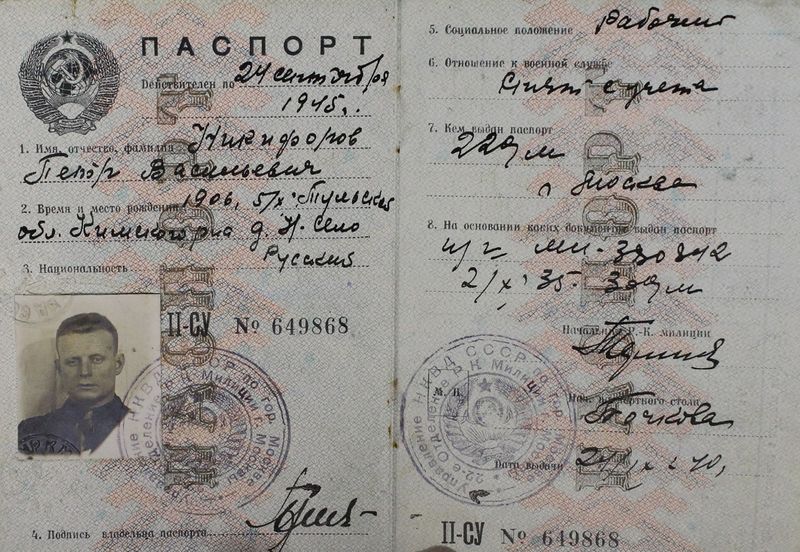 ПАСПОРТ
Действителен по 24 сентября
1945 г.
1. Имя, отчество, фамилия Никифоров
Пётр Васильевич
2. Время и место рождения 1906, 5/X Тульская
обл. д. Н-Село
3. Национальность Русский
II-СУ № 649868
Управление НКВД СССР по гор. Москве
Отделение Р. К. Милиции г. Москвы
4. Подпись владельца паспорта
5. Социальное положение Рабочий
6. Отношение к военной службе
Снят с учета
7. Кем выдан паспорт
22 о/м
г. Москва
8. На основании каких документов выдан паспорт
МЙ-330842
2/X 35.
Начальник Р.-К. милиции
М. П.
Управление НКВД СССР по гор. Москве
22-е Отделение Р. К. Милиции г. Москвы
Нач. паспортного стола
Точкова
Дата выдачи 24/IX 40 г.
II-СУ № 649868